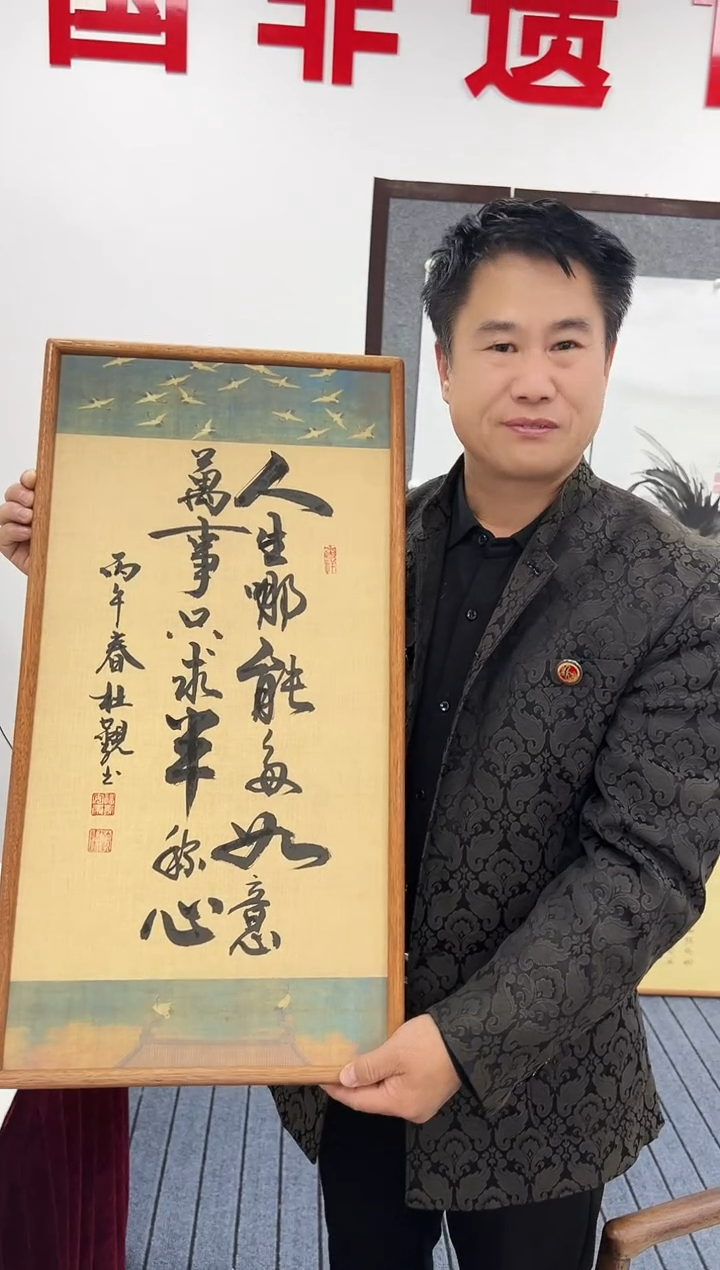 国非遗
人生哪能多如意
萬事只求半称心
丙午春杜觀书